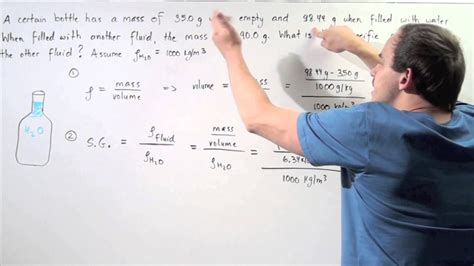 A certain bottle has a mass of 35.0 g empty and 98.44 g when filled with water
When filled with another fluid, the mass 90.0 g. What is specific
the other fluid? Assume ρH₂O = 1000 kg/m³
① ρ = mass/volume => volume =
98.44 g - 35.0 g
1000 g/kg
1000 kg/m³
H₂O
② S.G. = ρfluid/ρH₂O = mass/volume/ρH₂O =
1000 kg/m³